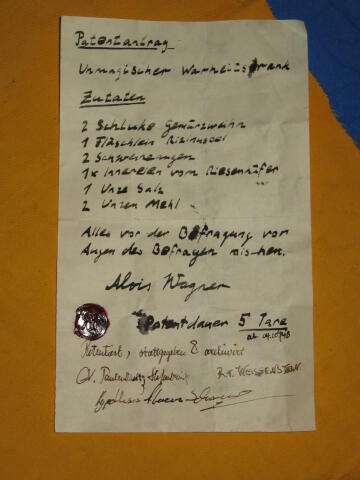 Patentantrag
Unmagischer Warheitstrank
Zutaten
2 Schlucke Gewürzwein
1 Fläschlein Rizinusoel
2 Schweineaugen
1x Innereen vom Riesenkäfer
1 Unze Salz
2 Unzen Mehl
Alles vor der Befragung vor
Augen des Befragen mischen.
Alois Wagner
Patentdauer 5 Tage
ab
Notentiert, stattgegeben & archiviert
R.v. WEISSENSTEIN